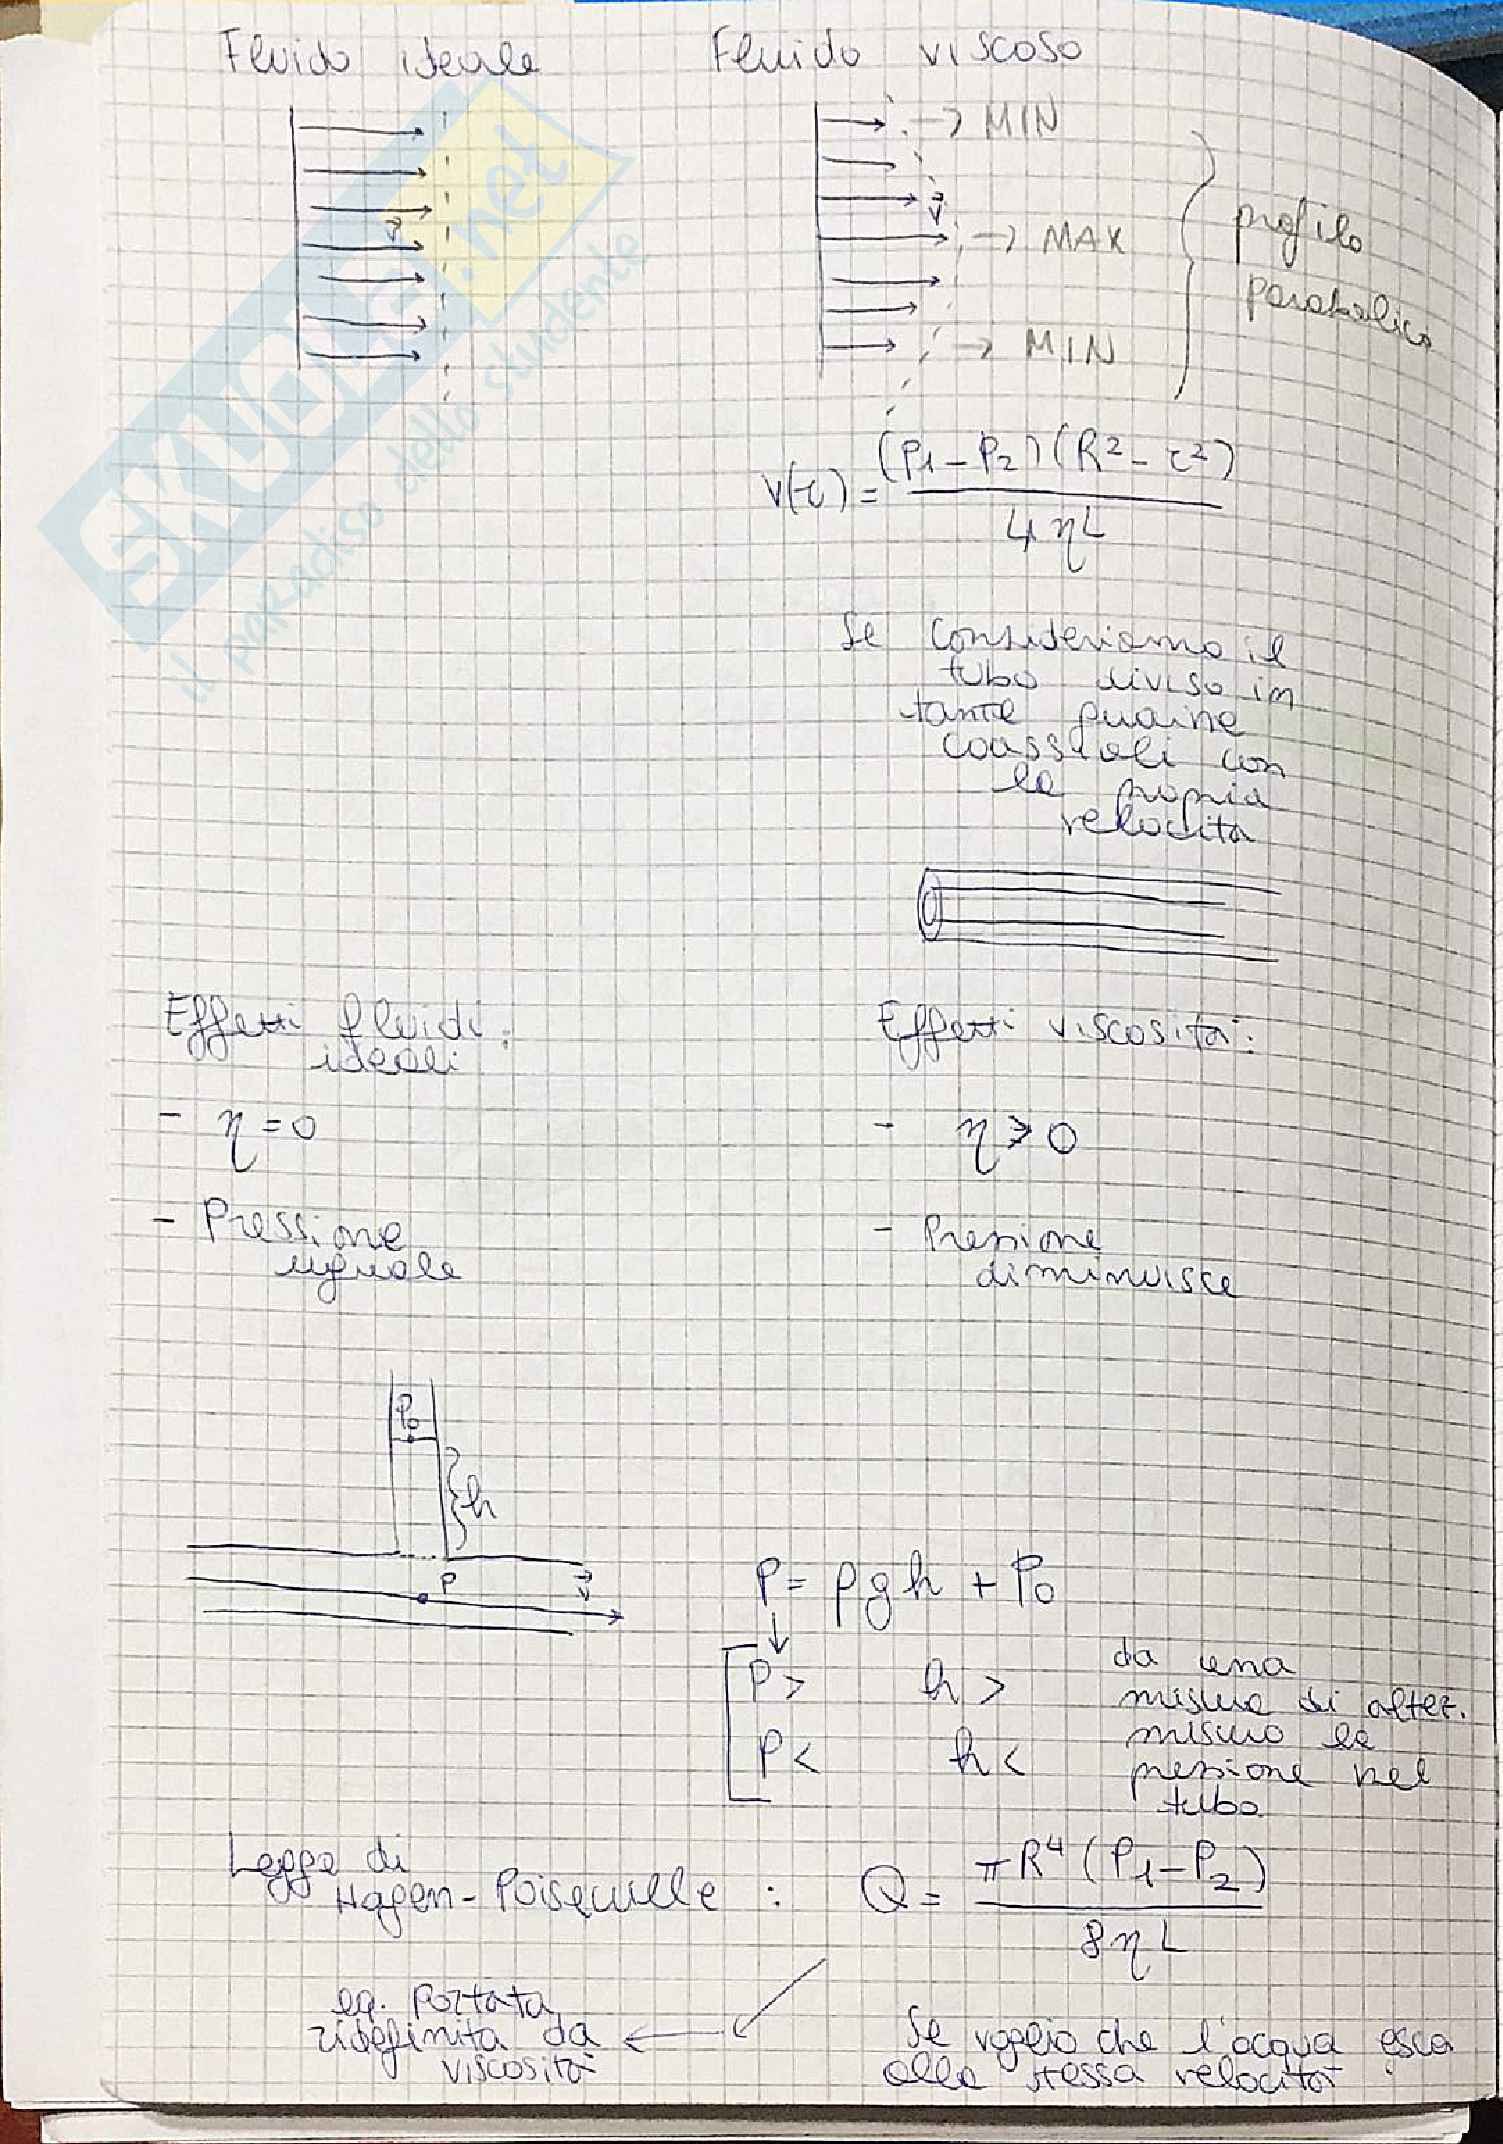 Fluido ideale
Fluido viscoso
→ MIN
v⃗
v⃗
→ MAX
→ MIN
profilo
parabolico
v(r) = (P1 - P2)(R² - r²)
4ηL
Se consideriamo il
tubo diviso in
tante guaine
coassiali con
la propria
velocità
Effetti fluidi:
ideali
- η = 0
- Pressione
uguale
Effetti viscosità:
- η > 0
- Pressione
diminuisce
P0
h
P
v⃗
P = ρgh + P0
↓
P> h>
P< h<
da una
misura di altez.
misuro la
pressione nel
tubo
Legge di
Hagen-Poiseuille : Q = πR⁴(P1 - P2)
8ηL
eq. portata
ridefinita da
viscosità
Se voglio che l'acqua esca
alla stessa velocità
SKUOLA.net
il paradiso dello studente